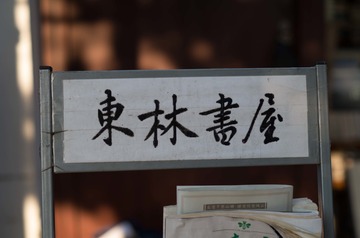 東林書屋